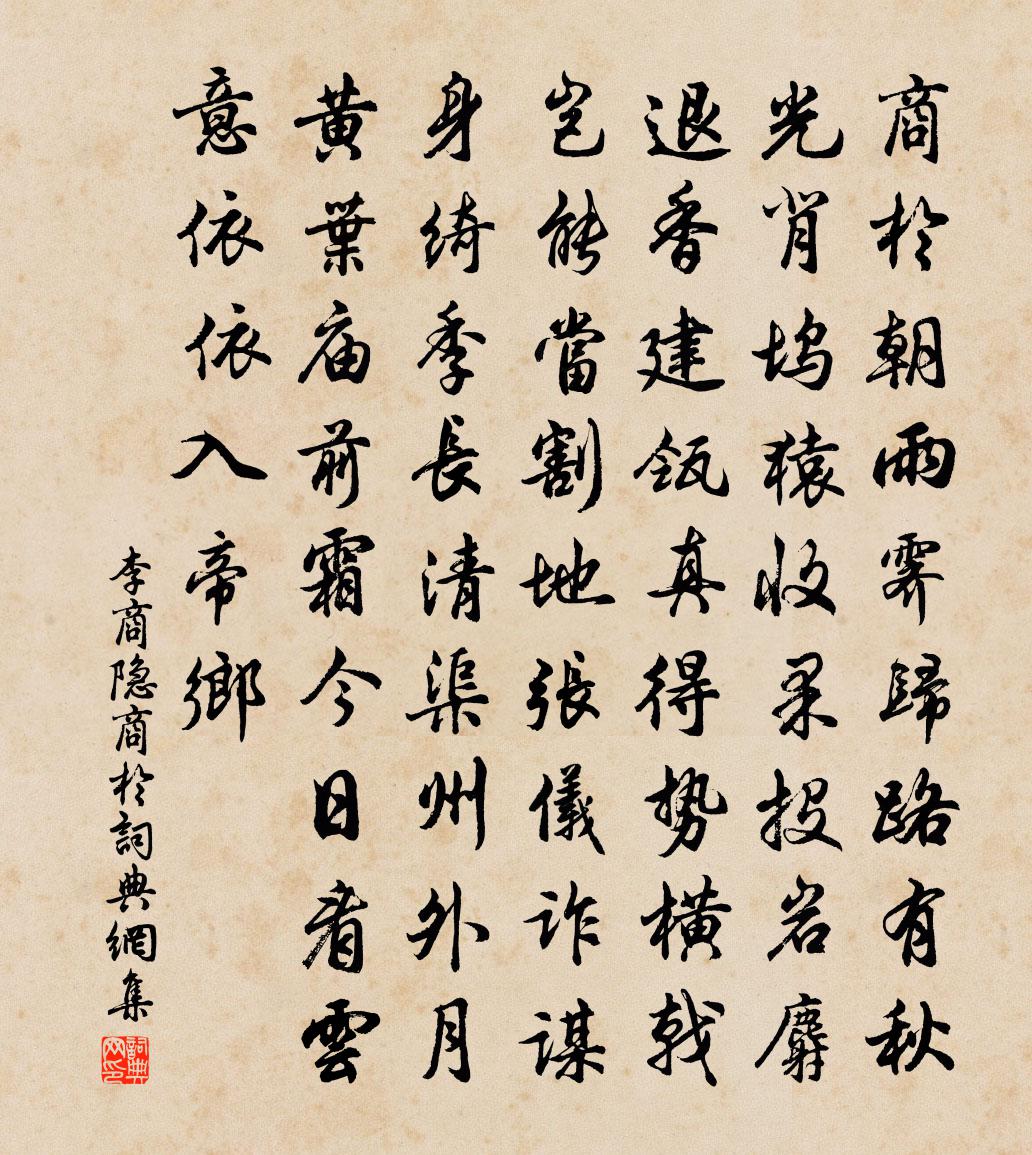 商於朝雨霽歸路有秋
光背塢猿收果投岩麝
退香建瓴真得势橫戟
豈能當割地張儀詐謀
身綺季長清渠州外月
黃葉庙前霜今日看雲
意依依入帝鄉
李商隐商於詞典網集
詞典网印